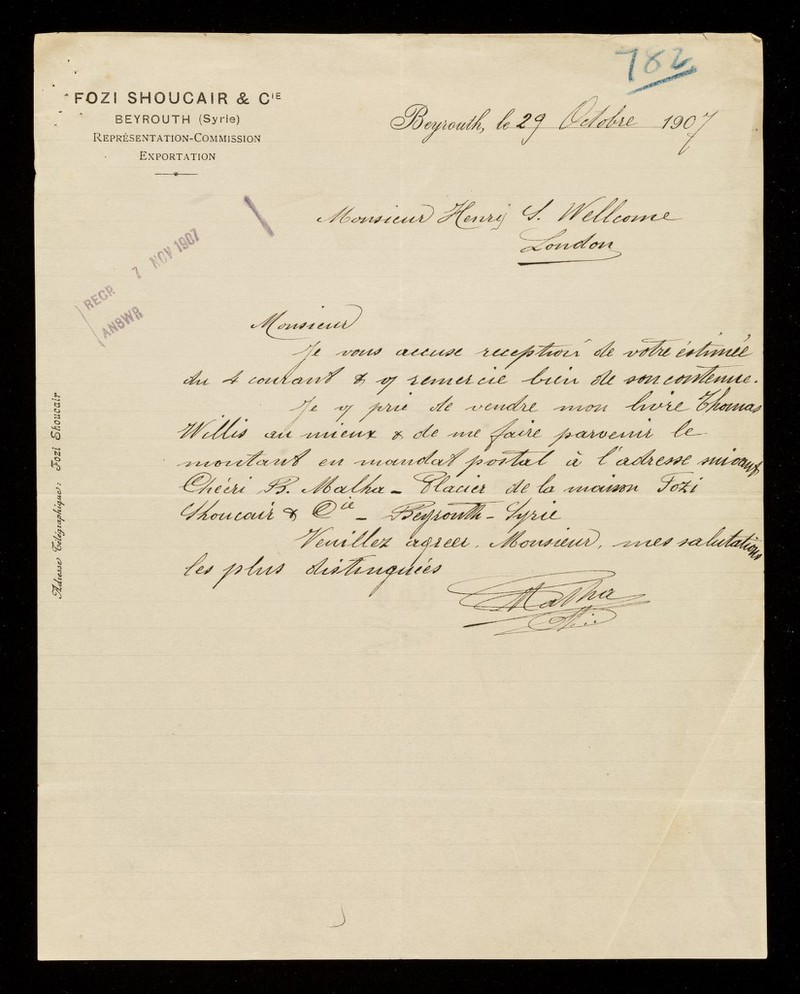 782
FOZI SHOUCAIR & CIE
BEYROUTH (Syrie)
REPRÉSENTATION-COMMISSION
EXPORTATION
Beyrouth, le 29 Octobre 1907
Monsieur Henry S. Wellcome
London
RECR 7 NOV 1907
ANSWR
Adresse Télégraphique: Fozi Shoucair
Monsieur
Je vous accuse reception de votre éstimée
du 4 courant & y remercie bien de son contenue.
Je y prie de vendre mon livre Thomas
Willis au mieux & de me faire parvenir le
montant en mandat postal à l'adresse suivant
Chécri B. Malha - Placier de la maison Fozi
Shoucair & Cie - Beyrouth - Syrie
Veuillez agreer, Monsieur, mes salutations
les plus distinguées
Malha